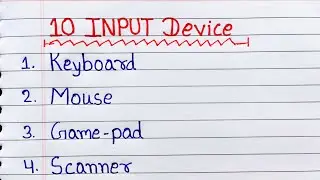 10 INPUT Device
1. Keyboard
2. Mouse
3. Game-pad
4. Scanner